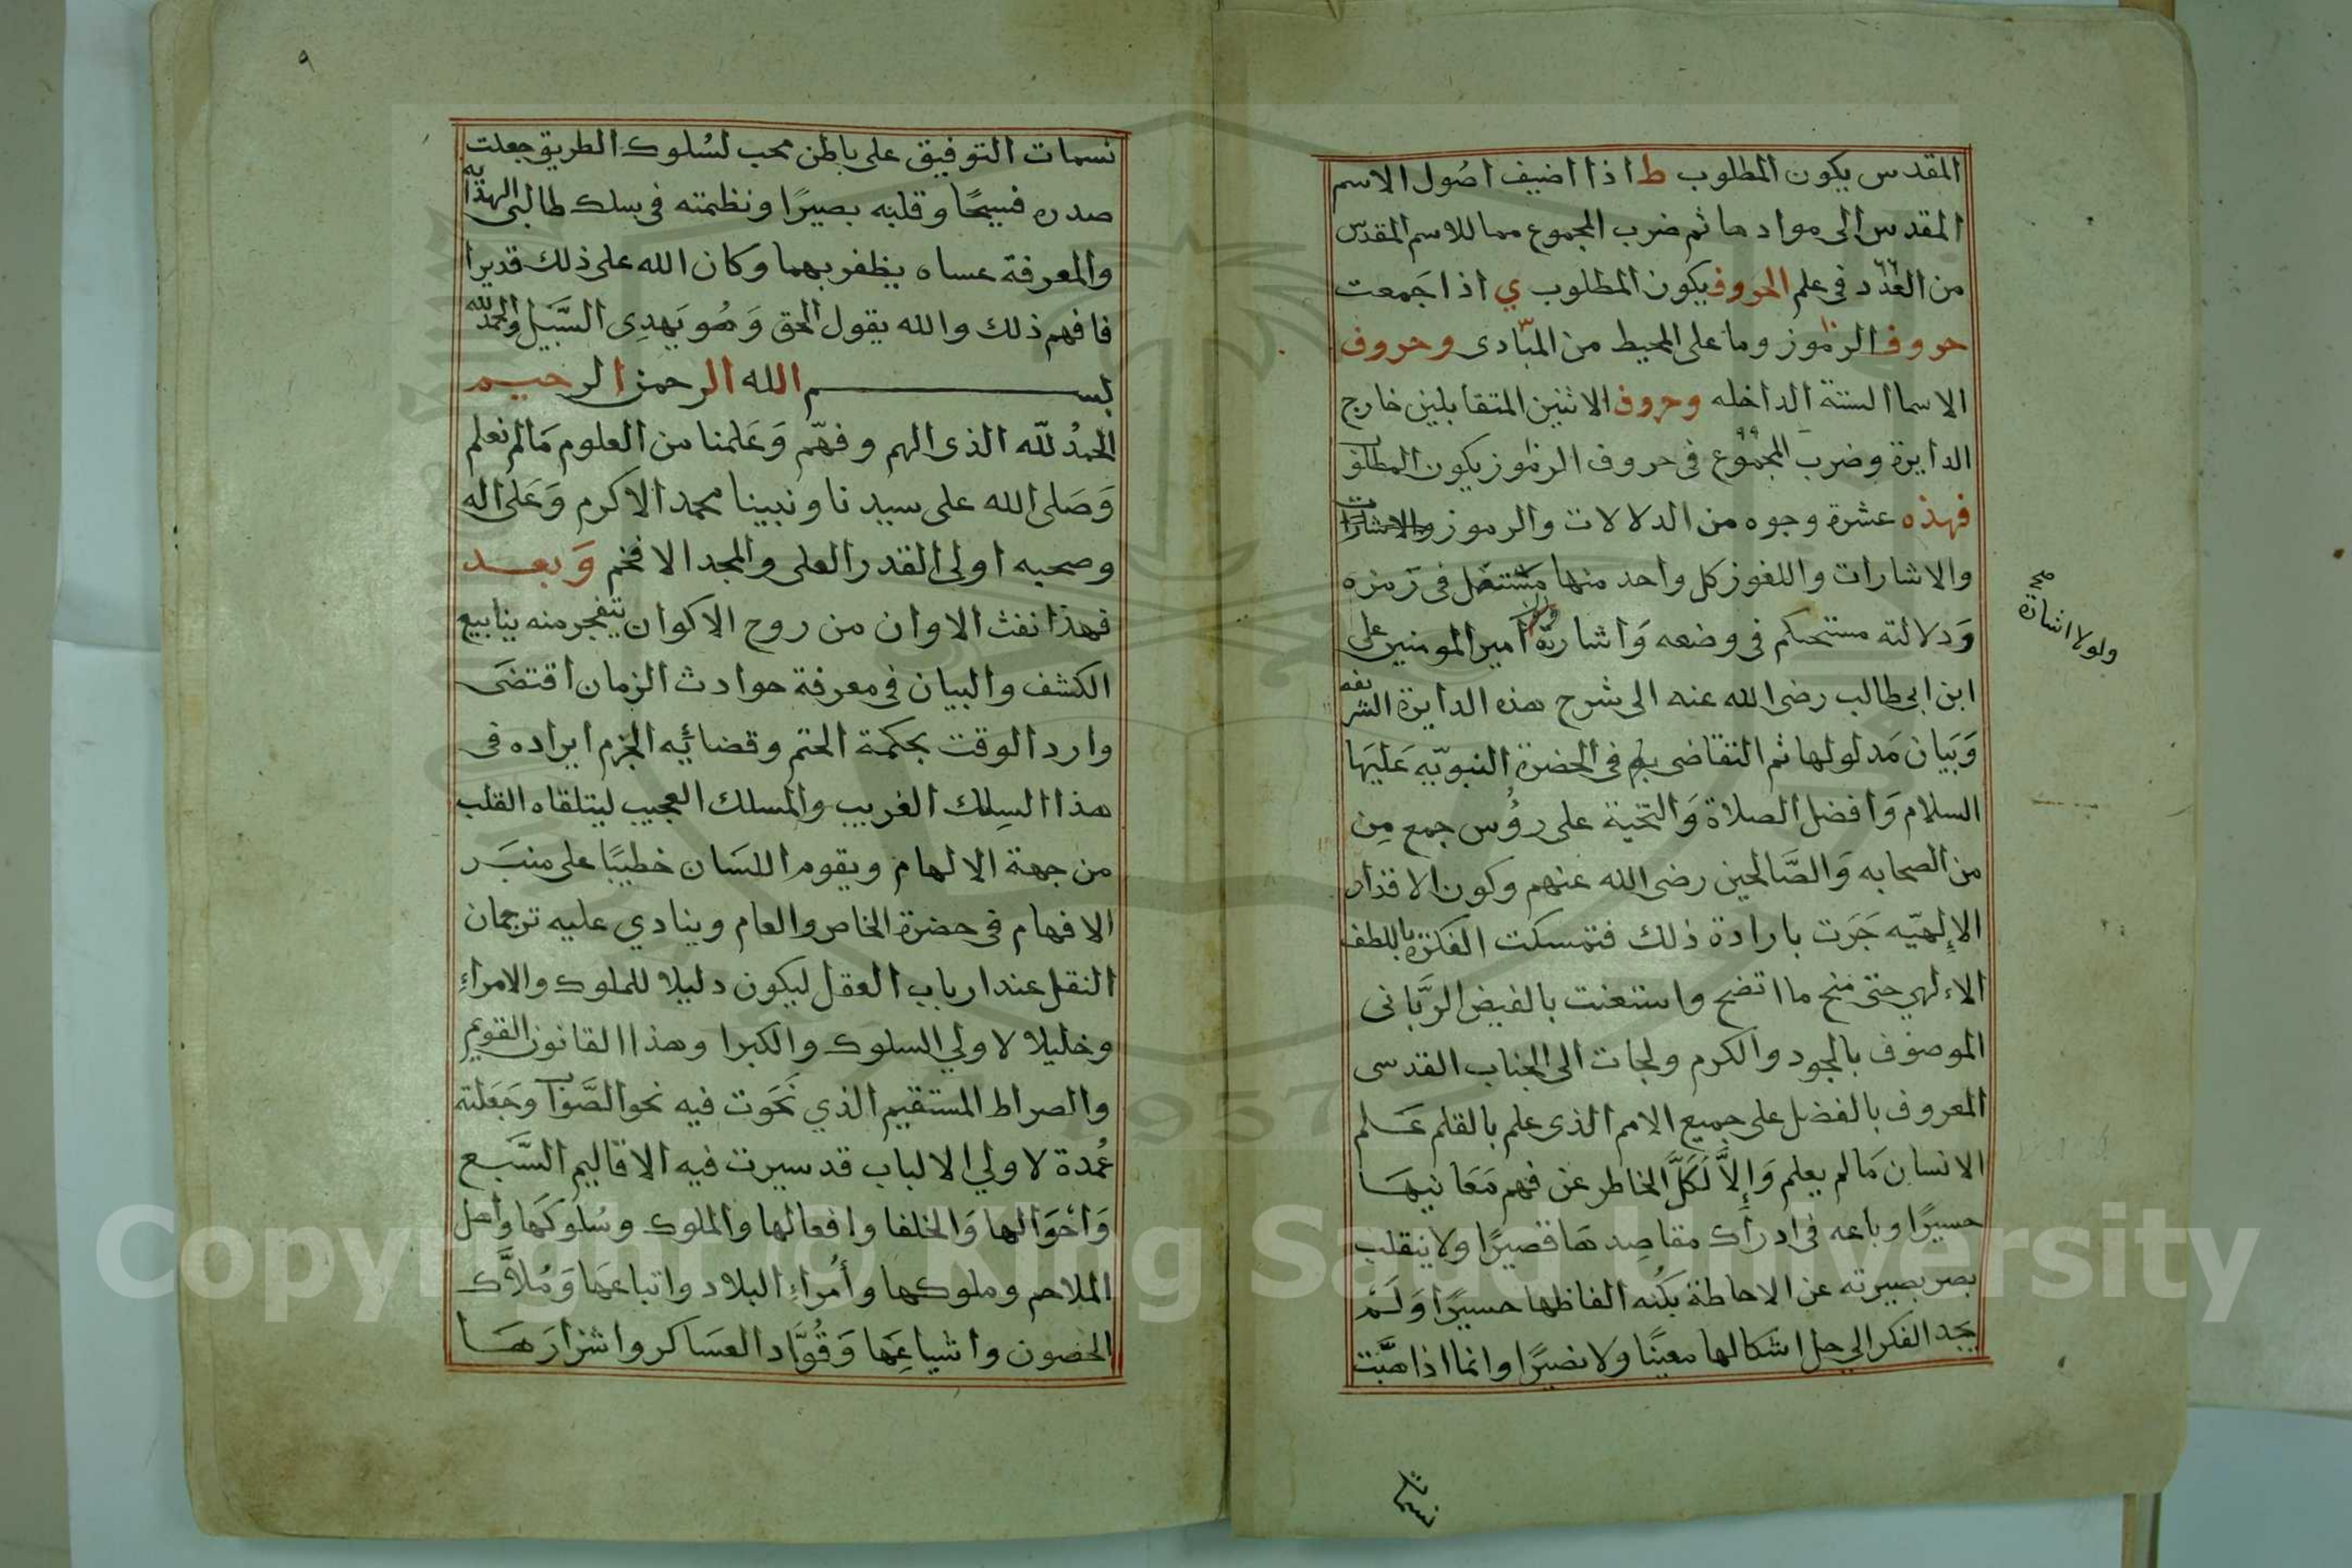 المقدس يكون المطلوب ط اذا اضيف اصُول الاسم
المقدس الى موادها ثم ضرب المجموع مما للاسم المقدّس
من العدد فى علم الحروف يكون المطلوب ي اذا جمعت
حروف الرموز وما على المحيط من المبادى وحروف
الاسما الستة الداخله وحروف الاثنين المتقابلين خارج
الدايرة وضرب المجموع فى حروف الرموز يكون المطلوب
فهذه عشرة وجوه من الدلالات والرموز والاشارات
والاشارات واللغوز كل واحد منها مستقل فى رمزه
وَدلالته مستحكم فى وضعه وَاشارة امير المومنين على
ولولا اشارة صح
ابن ابى طالب رضى الله عنه الى شرح هذه الدايرة الشريفه
وَبيان مَدلولها ثم التقاضى به فى الحضرة النبويّه عَليهَا
السلام وَافضل الصلاة وَالتحية على رؤُس جمع مِن
من الصحابه وَالصَّالحين رضى الله عنهم وكون الاقدار
الإلهيّه جَرَت بارادة ذلك فتمسكت الفكرة باللطف
الالهي حتى منح ما اتضح واستعنت بالفيض الرَّبانى
الموصوف بالجود والكرم ولجات الى الجناب القدسى
المعروف بالفضل على جميع الامم الذى علم بالقلم عَلم
الانسان مَا لم يعلم وَإلاَّ لَكَلَّ الخاطر عن فهم مَعَانيهَا
حسيرًا وباعه فى ادراك مقاصِدهَا قصيرًا ولا ينقلب
بصر بصيرته عن الاحاطة بكُنه الفاظها حسيرًا وَلَم
يجد الفكر الى حل اشكالها معينًا وَلا نصيرًا وانما اذا هبَّت
نسمات
٩
نسمات التوفيق على باطن محب لسُلوك الطريق جعلت
صدره فسيحًا وقلبه بصيرًا ونظمته فى سلك طالبى الهداية
والمعرفة عساه يظفر بهما وكان الله على ذلك قديرا
فافهم ذلك والله يقول الحق وَهُو يَهدِى السَّبيل والحمد لله
بسم الله الرحمن الرحيم
الحمدُ لله الذى الهم وفهّم وَعَلمنا من العلوم مَالم نعلم
وَصَلى الله على سيدنا ونبينا محمد الاكرم وَعَلى اله
وصحبه اولى القدر العلى والمجد الافخم وَبعد
فهذا نفث الاوان من روح الاكوان يتفجر منه ينابيع
الكشف والبيان فى معرفة حوادث الزمان اقتضَى
وارد الوقت بحكمة الحتم وقضائِه الجزم ايراده فى
هذا السِلك الغريب والمسلك العجيب ليتلقاه القلب
من جهة الالهام ويقوم اللسَان خطيبًا على منبَر
الافهام فى حضرة الخاص والعام وينادي عليه ترجمان
النقل عند ارباب العقل ليكون دليلا للملوك والامراءِ
وخليلا لاولي السلوك والكبرا وهذا القانون القويم
والصراط المستقيم الذي نَحَوت فيه نحو الصَّواب وَجَعَلته
عُمدة لاولي الالباب قد سيرت فيه الاقاليم السَّبع
وَاحْوَالها وَالخلفا وافعالها والملوك وسُلوكَها وأهل
الملاحم وملوكها وأُمراءِ البلاد واتباعَها وَمُلاَّك
الحصون واشياعِهَا وَقُوَّاد العسَاكر واشرارَهَا